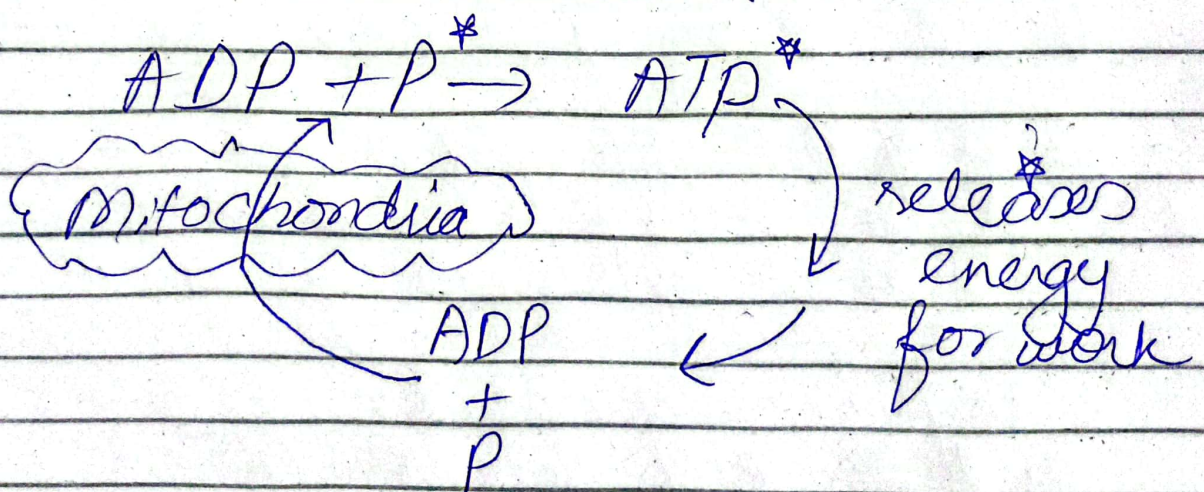 ADP + P* → ATP*
Mitochondria
releases*
energy
for work
ADP
+
P